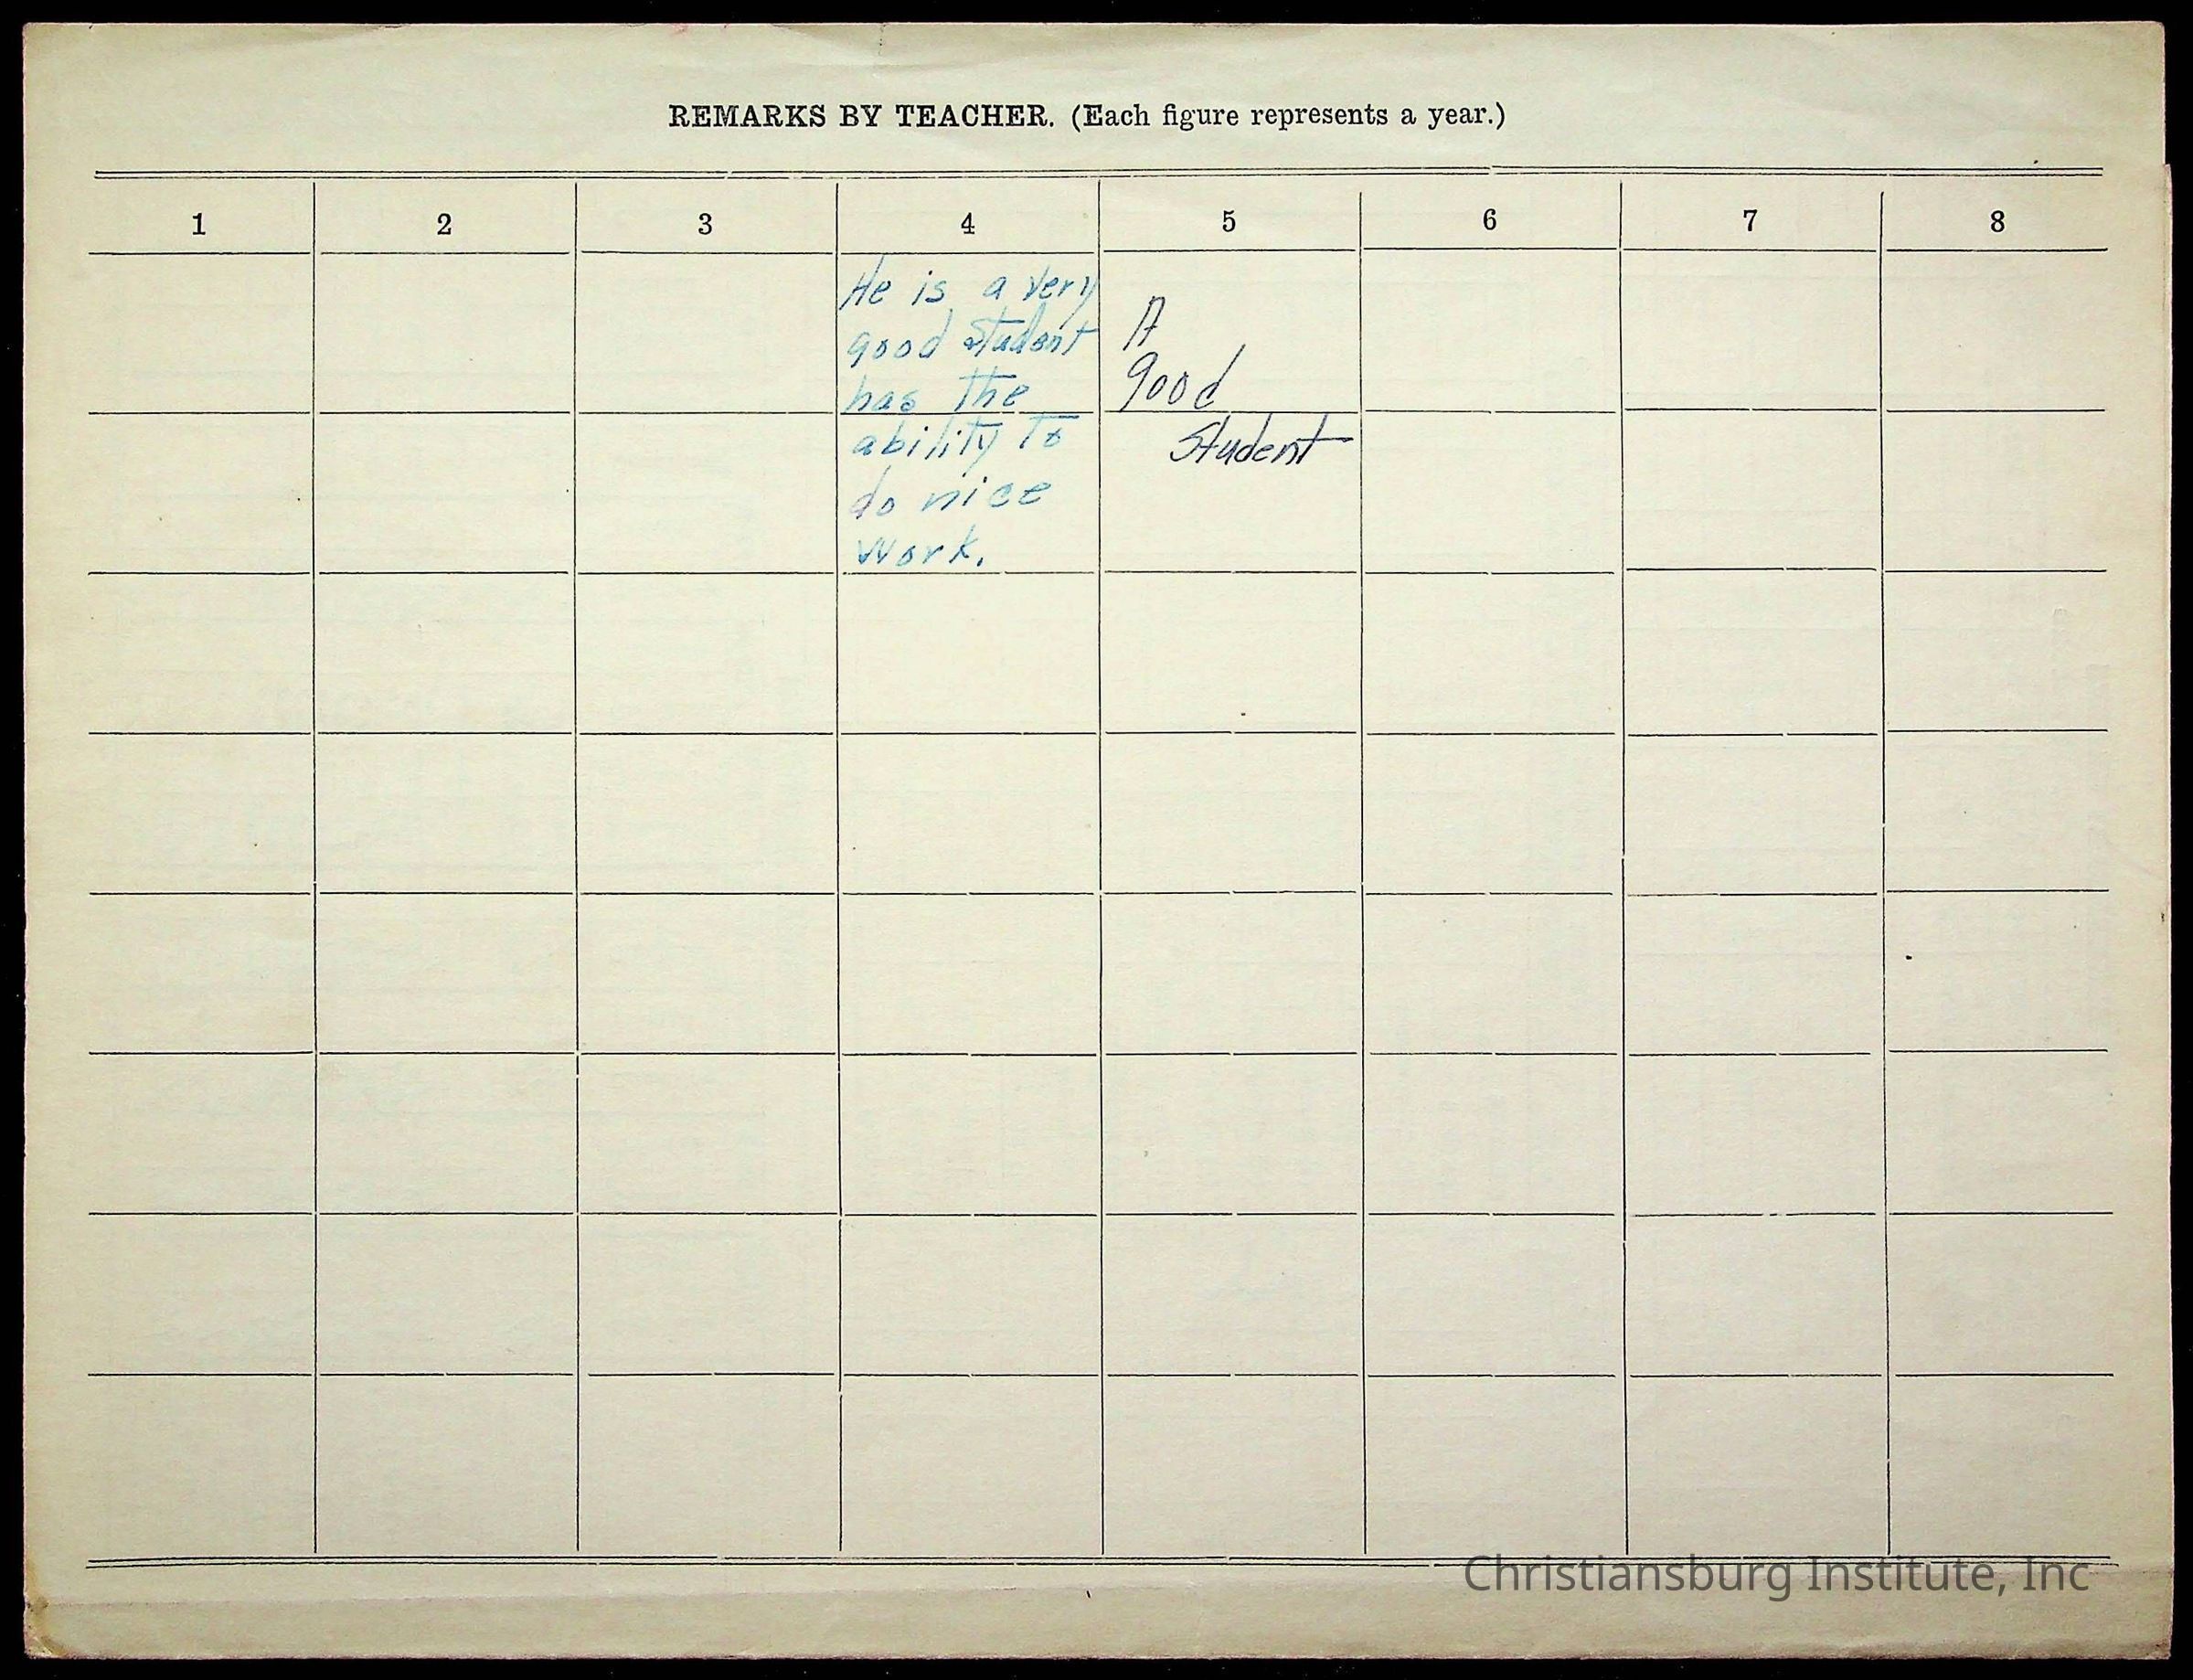 REMARKS BY TEACHER. (Each figure represents a year.)
1 2 3 4 5 6 7 8
He is a very
good student
has the
ability to
do nice
work.
A
good
Student
Christiansburg Institute, Inc